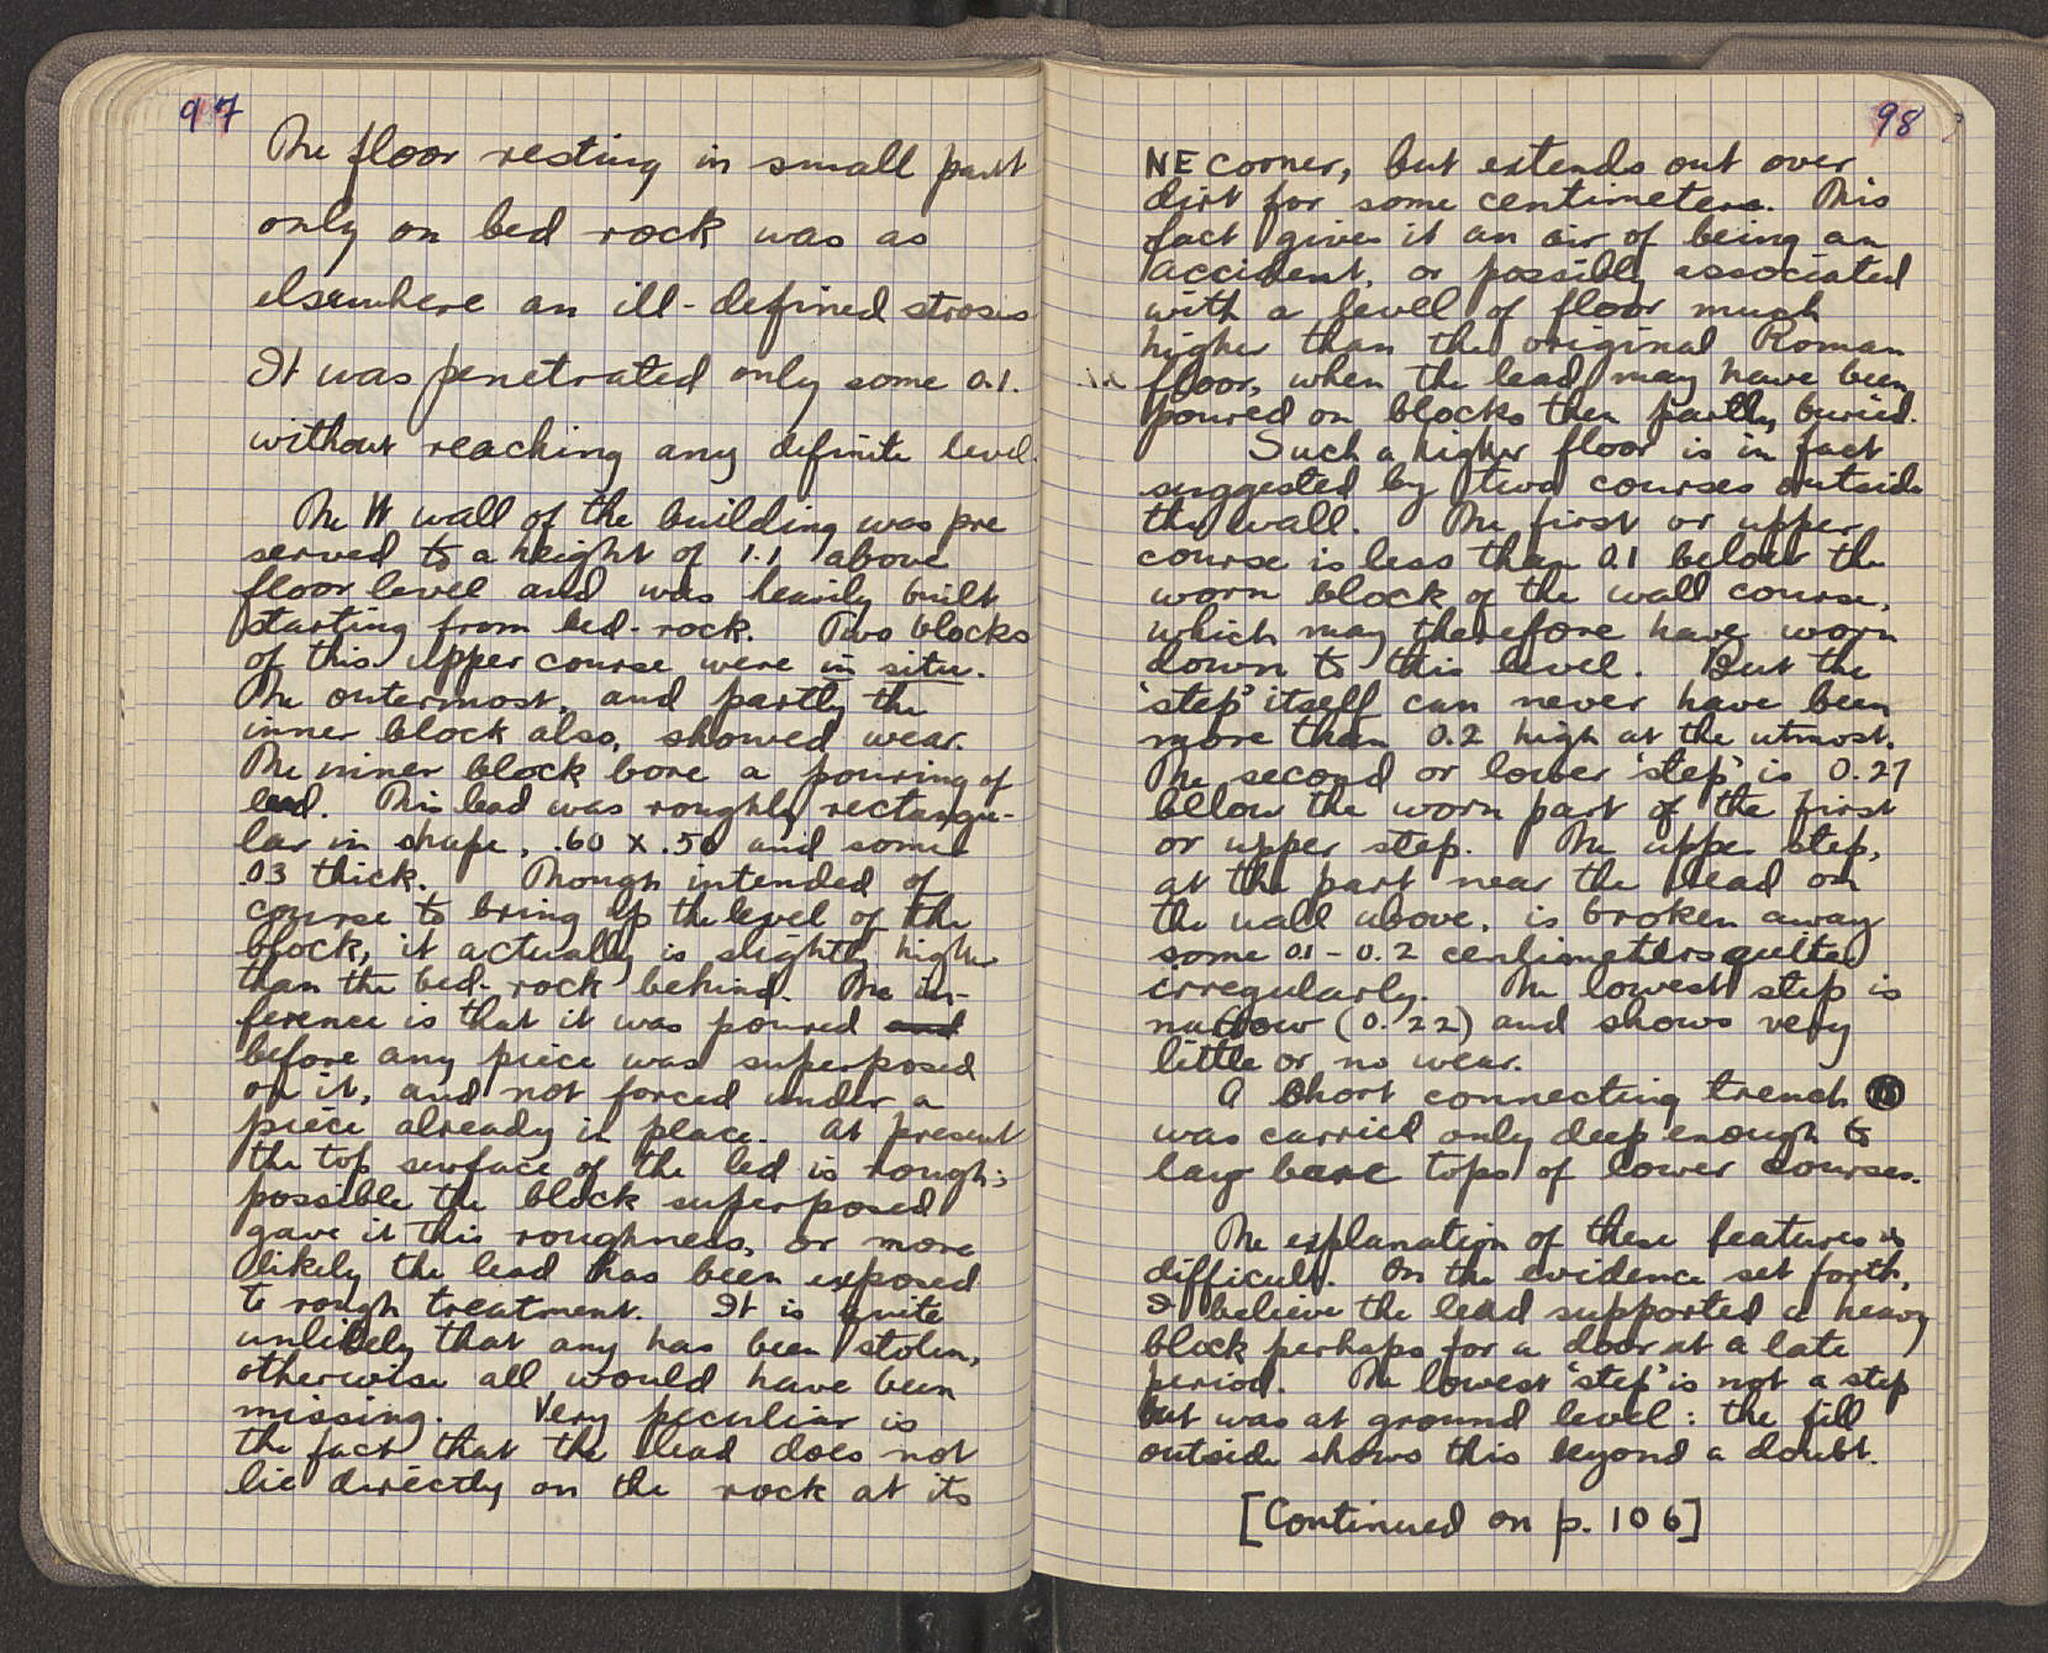 97
The floor resting in small part
only on bed rock was as
elsewhere an ill-defined strosis
It was penetrated only some 0.1.
without reaching any definite level.
The W wall of the building was pre
served to a height of 1.1 above
floor level and was heavily built
starting from bed-rock. Two blocks
of this upper course were in situ.
The outermost, and partly the
inner block also, showed wear.
The inner block bore a pouring of
lead. This lead was roughly rectangu-
lar in shape, .60 x .50 and some
.03 thick. Though intended of
course to bring up the level of the
block, it actually is slightly higher
than the bed-rock behind. The in-
ference is that it was poured and
before any piece was superposed
on it, and not forced under a
piece already in place. At present
the top surface of the led is rough;
possible the block superposed
gave it this roughness, or more
likely the lead has been exposed
to rough treatment. It is quite
unlikely that any has been stolen,
otherwise all would have been
missing. Very peculiar is
the fact that the lead does not
lie directly on the rock at its
98
NE corner, but extends out over
dirt for some centimeters. This
fact gives it an air of being an
accident, or possibly associated
with a level of floor much
higher than the original Roman
floor, when the lead may have been
poured on blocks then partly buried.
Such a higher floor is in fact
suggested by two courses outside
the wall. The first or upper
course is less than 0.1 below the
worn block of the wall course,
which may therefore have worn
down to this level. But the
'step' itself can never have been
more than 0.2 high at the utmost.
The second or lower 'step' is 0.27
below the worn part of the first
or upper step. The upper step,
at the part near the lead on
the wall above, is broken away
some 0.1-0.2 centimeters quite
irregularly. The lowest step is
narrow (0.22) and shows very
little or no wear.
A short connecting trench
was carried only deep enough to
lay bare tops of lower courses.
The explanation of these features is
difficult. On the evidence set forth,
I believe the lead supported a heavy
block perhaps for a door at a late
period. The lowest 'step' is not a step
but was at ground level: the fill
outside shows this beyond a doubt.
[Continued on p. 106]